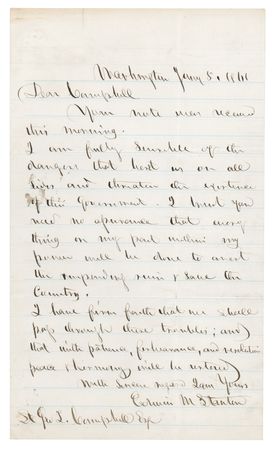 Washington Jany 5. 1861
Dear Campbell
Your note was received
this morning.
I am fully sensible of the
dangers that beset us on all
sides and threaten the existence
of this Government. I trust you
need no assurance that every
thing on my part within my
power will be done to avert
the impending ruin & save the
Country.
I have firm faith that we shall
pass through these troubles; and
that with patience, forbearance, and resolution
peace & harmony will be restored
With Sincere regard I am Yours
Edwin M Stanton
Campbell Esq